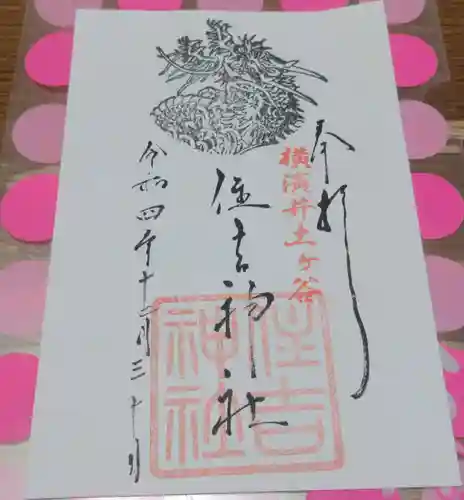 奉拝
横濱井土ヶ谷
住吉神社
住吉神社
令和四年十二月三十日